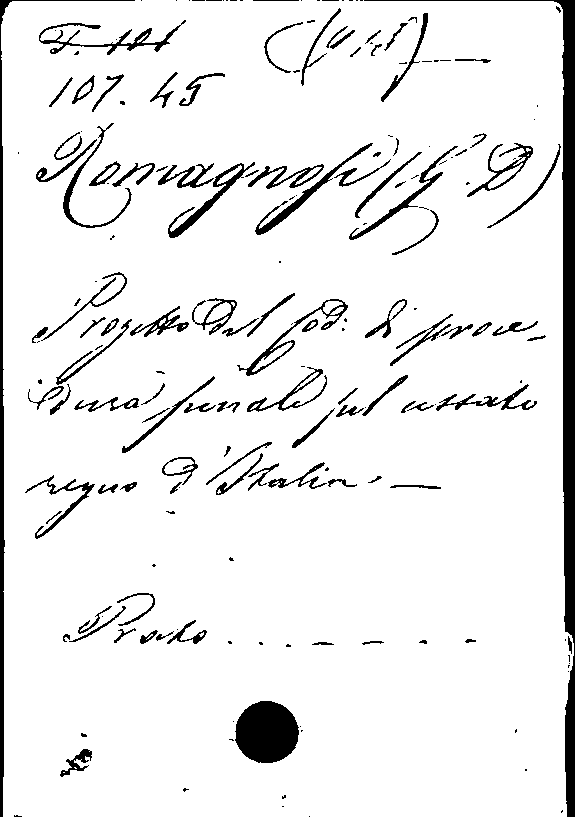 F. 101
107. 45
Romagnosi (G. D)
Progetto del Cod: di proce-
dura penale pel cessato
regno d'Italia. —
Prato . . . – – . . -